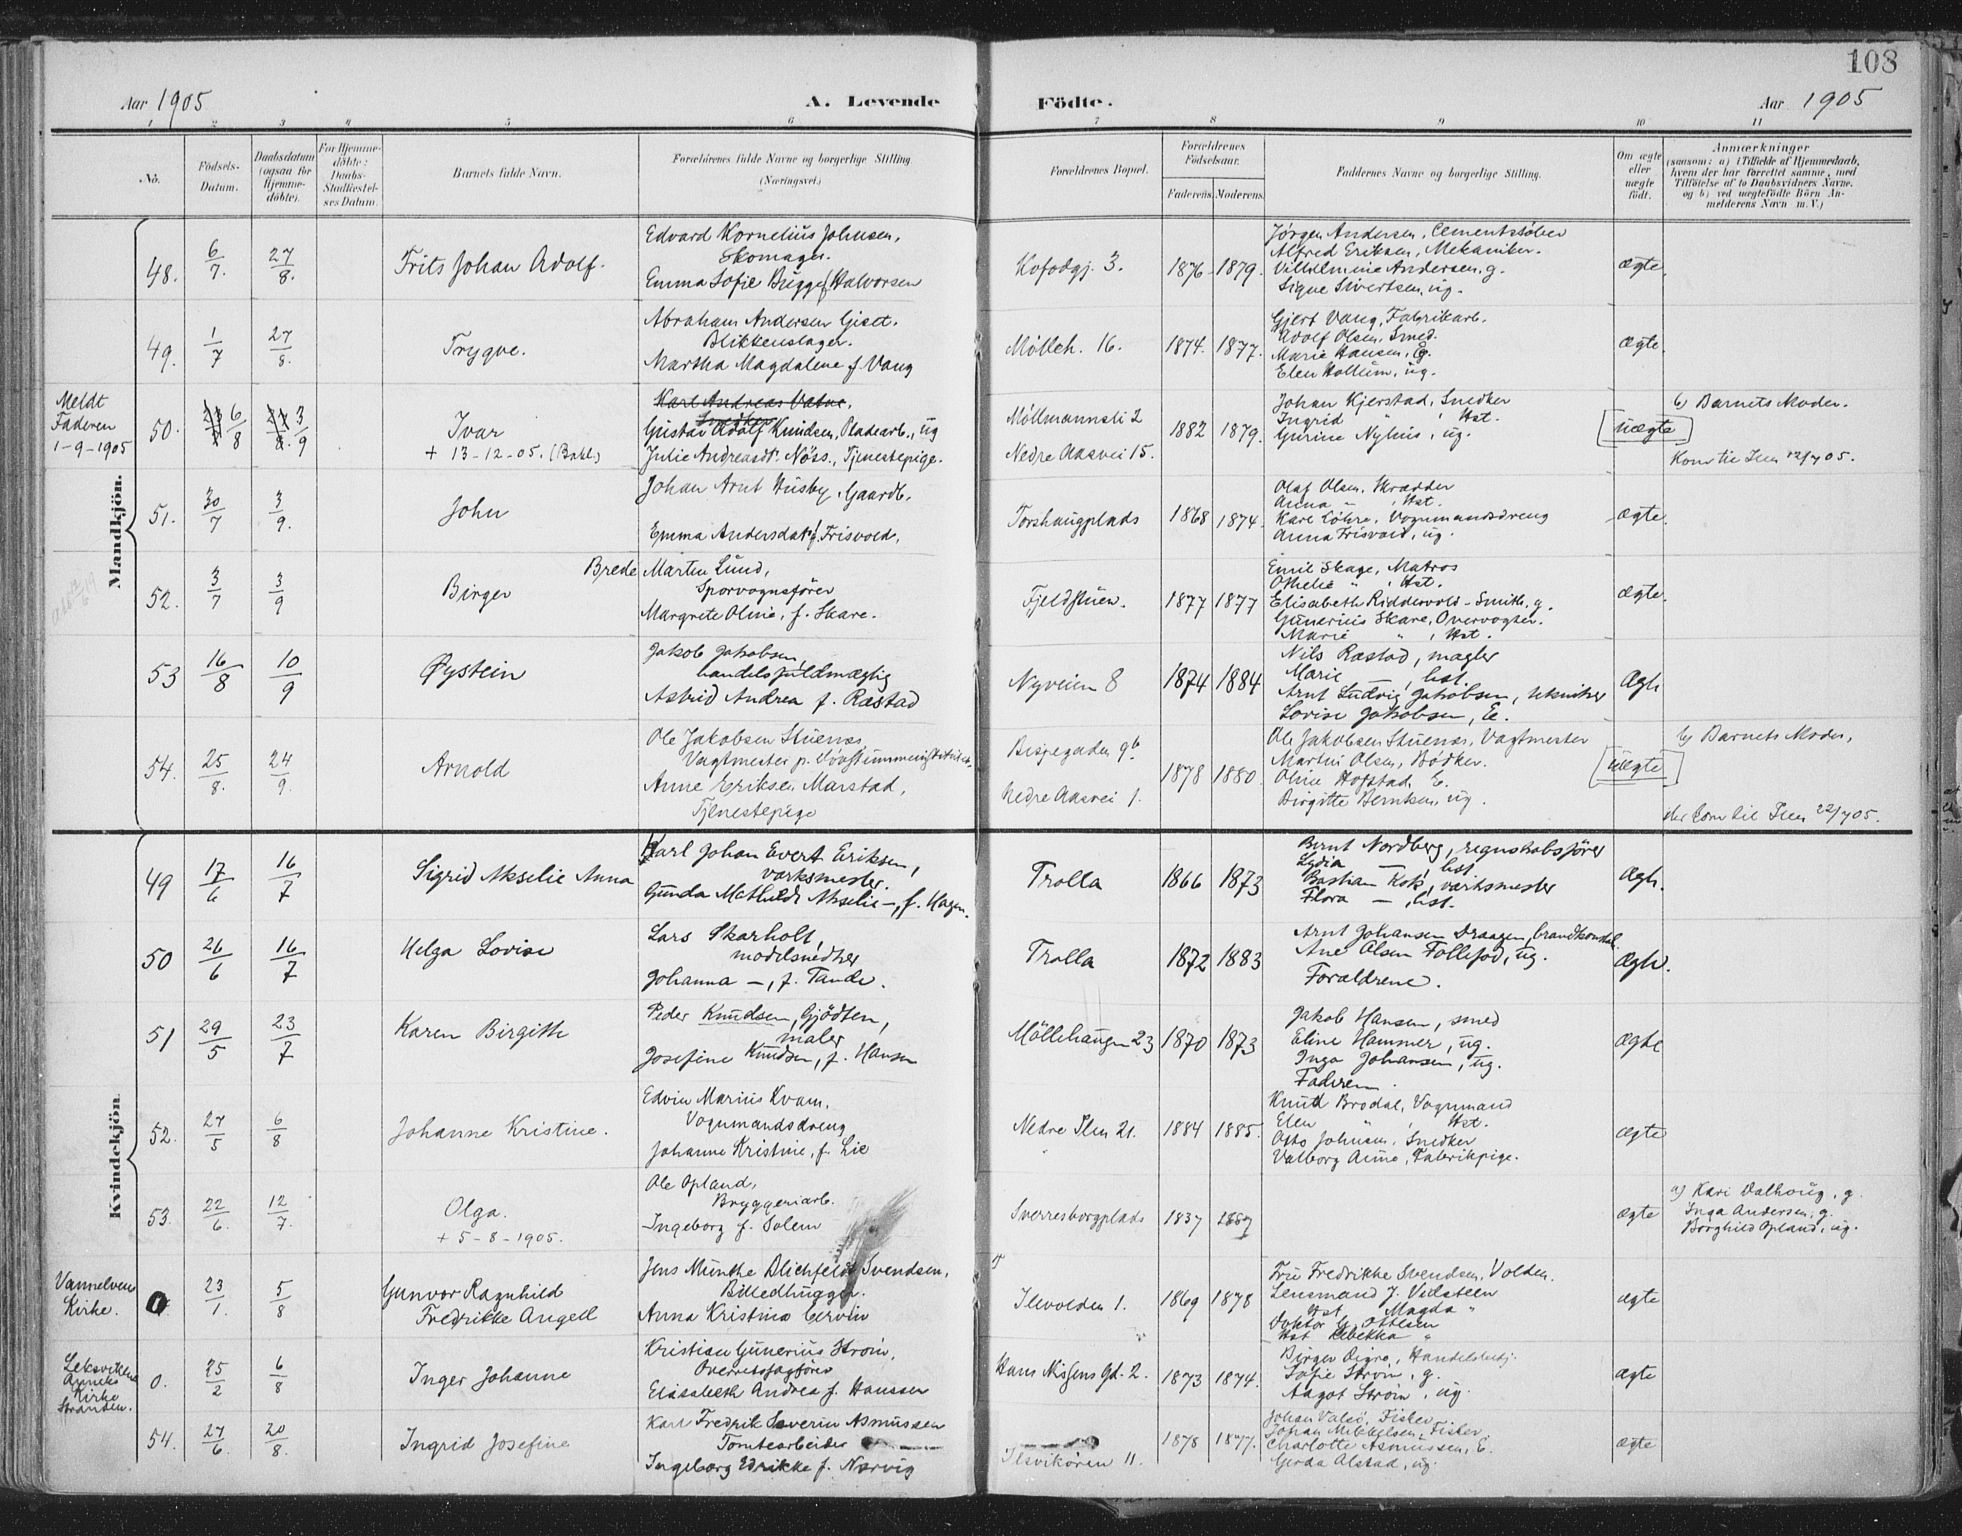 108
Aar 1905
A. Levende
Födte.
Aar 1905
1 2 3 4 5 6 7 8 9 10 11
No.
Födsels-Datum.
Daabsdatum (ogsaa for Hjemme-döbte).
For Hjemme-döbte: Daabs-Stadfæstel-ses Datum.
Barnets fulde Navn.
Forældrenes fulde Navne og borgerlige Stilling (Næringsvei.)
Forældrenes Bopæl.
Forældrenes Födselsaar.
Faderens. Moderens.
Faddernes Navne og borgerlige Stilling.
Om ægte eller uægte födt.
Anmærkninger
(saasom: a) i Tilfælde af Hjemmedaab,
hvem der har forrettet samme, med
Tilföielse af to Daabsvidners Navne,
og b) ved uægtefödte Börn An-
melderens Navn m. V.)
Mandkjön.
48. 6/7. 27/8. Frits Johan Adolf.
Edvard Kornelius Johnsen,
Skomager.
Emma Sofie Bugge f. Halvorsen
Kofodgj. 3. 1876 1879.
Jørgen Andersen, Cementstøber
Alfred Eriksen, Mekaniker.
Vilhelmine Andersen, g.
Signe Sivertsen, ug.
ægte.
49. 1/7 27/8. Trygve.
Abraham Andersen Gisct.
Blikkenslager.
Martha Magdalene f. Vang
Mølleh. 16. 1874. 1877.
Gjert Vang, Fabrikarb.
Adolf Olsen, Smed.
Marie Hansen, g.
Elen Hollum, ug.
ægte.
Meldt
Faderen
1-9-1905
50. 6/8 3/9 Ivar
+ 13-12-05. (Bakl.)
Karl Andreas Vatne,
Snedker
Gustav Adolf Knudsen, Pladearb., ug
Julie Andreasdt. Nöss., Tjenestepige.
Möllmannsli 2
Nedre Aasvei 15.
1882 1879.
Johan Kjerstad, Snedker
Ingrid " , Hst.
Gurine Nyhus, ug.
uægte
b) Barnets Moder.
Kom til Ilen 12/7 05.
51. 30/7 3/9. John
Johan Arnt Husby, Gaardb.
Emma Andersdat. f. Frisvold.
Torshaugplads 1868 1874.
Olaf Olsen, Skrædder
Anna " , Hst.
Karl Löhre, Vognmandsdreng
Anna Frisvold, ug.
ægte.
52. 3/7 3/9 Birger
Brede Martin Lund,
Sporvognsfører
Margrete Oline, f. Skare.
Fjeldstuen. 1877 1877
Emil Skage, Matros
Othelie " , Hst.
Elisabeth Riddervold-Smith, g.
Gunerius Skare, Overvogter.
Marie " , Hst.
ægte.
53 16/8 10/9 Øystein
Jakob Jakobsen,
handelsfuldmægtig
Astrid Andrea f. Ræstad
Nyveien 8 1874 1884
Nils Ræstad, mægler
Marie — , hst.
Arnt Ludvig Jakobsen, tekniker
Lovise Jakobsen, E.
Ægte
54. 25/8. 24/9. Arnold
Ole Jakobsen Stuenæs
Vagtmester p. Døvstummeinstitutet.
Anne Eriksen Marstad,
Tjenestepige
Bispegaden 9b
Nedre Aasvei 1.
1878 1880.
Ole Jakobsen Stuenæs, Vagtmester
Martin Olsen, Bödker.
Oline Hofstad, E.
Birgitte Berntsen, ug.
uægte
b) Barnets Moder,
der kom til Ilen 22/7 05.
Kvindekjön.
49 17/6 16/7 Sigrid Akselie Anna
Karl Johan Evert Eriksen,
værksmester.
Gunda Mathilde Akselie —, f. Hagen.
Trolla 1866 1873
Bernt Nordberg, regnskabsfører
Lydia — , hst.
Bastian Kok, værksmester
Flora — , hst.
Ægte.
50 26/6 16/7 Helga Lovise
Lars Skarholt,
modelsnedker
Johanna —, f. Tande.
Trolla 1872 1883
Arnt Johansen Draagen, brandkonstabel
Ane Olsen Follesød, ug.
Forældrene.
Ægte.
51 29/5 23/7 Karen Birgithe
Peder Knudsen, Gjödten,
maler
Josefine Knudsen, f. Hansen
Möllehaugen 23 1870 1873
Jakob Hansen, smed
Eline Hammer, ug.
Inga Johansen, ug.
Faderen.
ægte
52. 27/5 6/8 Johanne Kristine.
Edvin Marius Kvam,
Vognmandsdreng
Johanne Kristine, f. Lie
Nedre Ilen 21. 1884 1885.
Knut Brodal, Vognmand
Elen " , Hst.
Otto Johnsen, Snedker
Valborg Aune, Fabrikpige.
ægte
53. 22/6. 12/7. Olga.
+ 5-8-1905.
Ole Opland,
Bryggeriarb.
Ingeborg f. Solem
Sverresborgplads 1837 1867
ægte
a) Kari Dalhoug, g.
Inga Andersen, g.
Borghild Opland, ug.
Vannelven
Kirke.
0. 23/1. 5/8 Gunvor Ragnhild
Fredrikke Angell
Jens Munthe Blichfeldt Svendsen,
Billedhugger.
Anna Kristina Cervin
Ilevolden 1. 1869 1878
Fru Fredrikke Svendsen, Volden.
Lensmand J. Veilsteen
Hst. Magda "
Doktor G. Ottesen
Hst Rebekka "
ægte
Leksviken
Annekskirke
Stranden.
0. 25/2 6/8 Inger Johanne
Kristian Gunerius Strøm,
Overretssagfører
Elisabeth Andrea f. Hanssen
Hans Nissens Gd. 2. 1873 1874.
Birger Digre, Handelsbetj.
Sofie Strøm, g.
Aagot Strøm, ug.
ægte
54. 27/6. 20/8. Ingrid Josefine
Karl Fredrik Severin Asmussen
Tomtearbeider
Ingeborg Edrikke f. Nervig
Ilsvikören 11. 1878 1877.
Johan Valsö, Fisker.
Johan Mikkelsen, Fisker.
Charlotte Asmussen, E.
Gerda Alstad, ug.
ægte